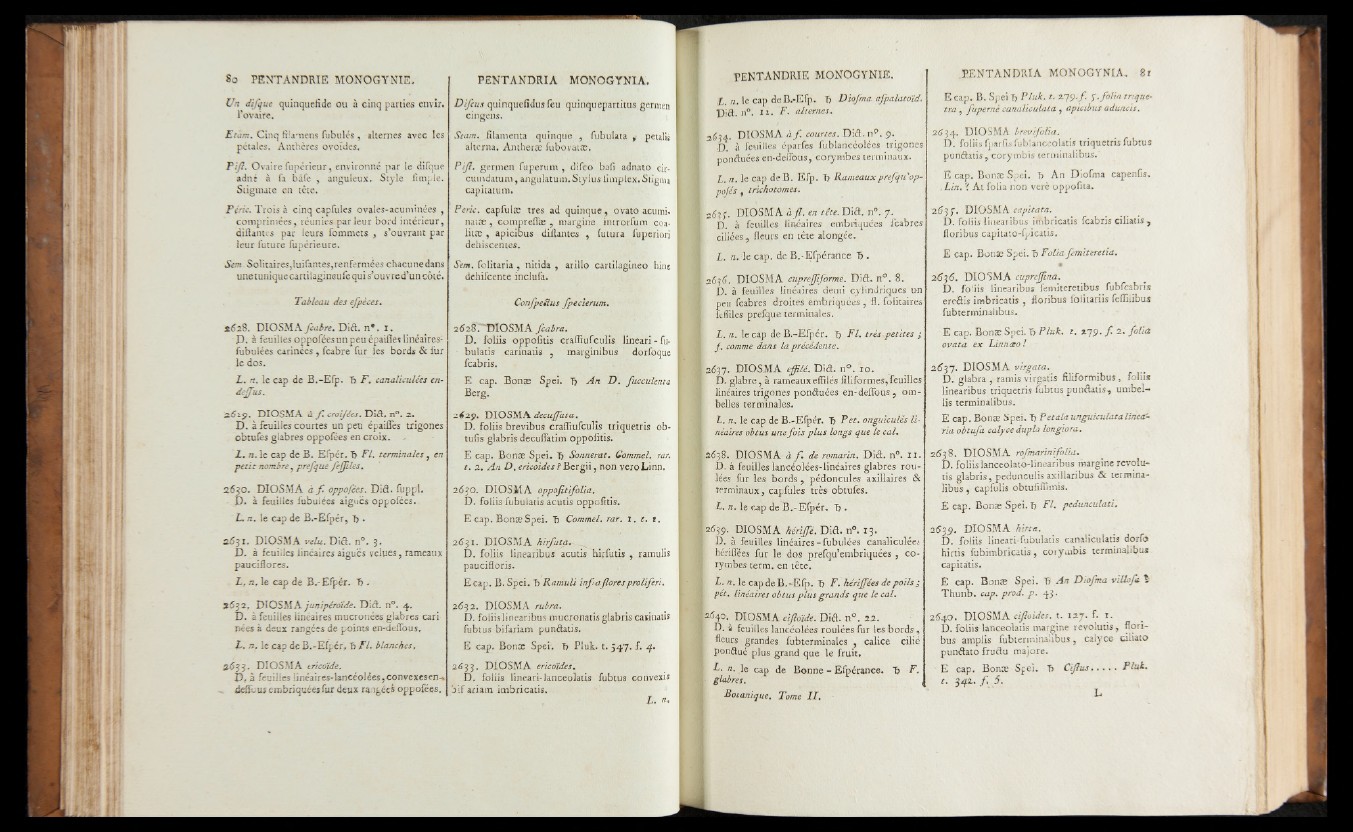 80 PENTANDRIE MONOGYNIE.
Un disque quinquefide ou à cinq parties envir.
l'ovaire.
Etam. Cinq filamens subulés, alternes avec les
pétales. Anthères ovoïdes.
Pist. Ovaire supérieur, environné par le disque
adné à sa base, anguleux. Style simple.
Stigmate en tête.
Péric. Trois à cinq capsules ovales-acuminées,
comprimées, réunies par leur bord intérieur,
distantes par leurs sommets, s'ouvrant par
leur suture supérieure.
Sem. Solitaires, luisantes, renfermées chacune dans
une tunique cartilagineuse qui s'ouvre d'un côté.
Tableau des espèces.
2628. DIOSMA scabre. Dict. n°. 1.
D. à feuilles opposées un peu épaisses linéaires-
subulées carinées, scabre sur les bords & sur
le dos.
L. n. le cap de B.-Esp. ♄ F. canaliculées en-
dessus.
2629. DIOSMA à f. croisées. Dict. n°. 2.
D. à feuilles courtes un peu épaisses trigones
obtuses glabres opposées en croix.
L. n. le cap de B. Espér. ♄ Fl. terminales, en
petit nombre, presque sessiles.
2630. DIOSMA à f. opposées. Dict. suppl.
D. à feuilles subulées aiguës opposées.
L. n. le cap de B.-Espér, ♄.
2631. DIOSMA velu. Dict. n°. 3.
D. à feuilles linéaires aiguës velues, rameaux
pauciflores.
L. n. le cap de B.-Espér. ♄.
2632. DIOSMA junipéroïde. Dict. n°. 4.
D. à feuilles linéaires mucronées glabres cari
nées à deux rangées de points en-dessous.
L. n. le cap de B.-Espér. ♄ Fl. blanches.
2633. DIOSMA ericoïde.
D. à feuilles linéaires-lancéolées, convexes en-
dessous embriquées sur deux rangées opposées.
PENTANDRIA MONOGYNIA.
Discus quinquefidus seu quinquepartitus germen
cingens.
Stam. filamenta quinque, subulata, petalis
alterna. Antheræ subovatæ.
Pist. germen superum, disco basi adnato cir-
cumdatum, angulatum. Stylus simplex. Stigma
capitatum.
Peric. capsulæ tres ad quinque, ovato acumi-
natæ, compressæ, margine introrsum coa-
litæ, apicibus distantes, sutura superiori
dehiscentes.
Sem. solitaria, nitida, arillo cartilagineo hinc
dehiscente inclusa.
Conspectus specierum.
2628. DIOSMA scabra.
D. foliis oppositis crassiusculis lineari-su-
bulatis carinatis, marginibus dorsoque
scabris.
E cap. Bonæ Spei. ♄ An D. succulenta
Berg.
2629. DIOSMA decussata.
D. foliis brevibus crassiusculis triquetris ob-
tusis glabris decussatim oppositis.
E cap. Bonæ Spei. ♄ Sonnerat. Commel. rar.
t. 2. An D. ericoides? Bergii, non vero Linn.
2630. DIOSMA oppositifolia.
D. foliis subulatis acutis oppositis.
E cap. Bonæ Spei. ♄ Commel. rar. 1. t. 1.
2631. DIOSMA hirsuta.
D. foliis linearibus acutis hirsutis, ramulis
paucifloris.
E cap. B. Spei. ♄ Ramuli infra flores proliferi.
2632. DIOSMA rubra.
D. foliis linearibus mucronatis glabris carinatis
subtus bifariam punctatis.
E cap. Bonæ Spei. ♄ Pluk. t. 347. f. 4.
2633. DIOSMA ericoides.
D. foliis lineari-lanceolatis subtus convexis
bifariam imbricatis.
L. n.
PENTANDRIE MONOGYNIE.
L. n. le cap de B.-Esp. ♄ Diosma aspalatoid.
Dict. n°. 12. F. alternes.
2634. DIOSMA à f. courtes. Dict. n°. 9.
D. à feuilles éparses sublancéolées trigones
ponctuées en-dessous, corymbes terminaux.
L. n. le cap de B. Esp. ♄ Rameaux presqu'op-
posés, trichotomes.
2635. DIOSMA à fl. en tête. Dict. n°. 7.
D. à feuilles linéaires embriquées scabres
ciliées, fleurs en tête alongée.
L. n. le cap. de B.-Espérance ♄.
2636. DIOSMA cupressiforme. Dict. n°. 8.
D. à feuilles linéaires demi cylindriques un
peu scabres droites embriquées, fl. solitaires
sessiles presque terminales.
L. n. le cap de B.-Espér. ♄ Fl. très petites;
f. comme dans la précédente.
2637. DIOSMA effilé. Dict. n°. 10.
D. glabre, à rameaux effilés filiformes, feuilles
linéaires trigones ponctuées en-dessous, om-
belles terminales.
L. n. le cap de B.-Espér. ♄ Pet. onguiculés li-
néaires obtus une fois plus longs que le cal.
2638. DIOSMA à f. de romarin. Dict. n°. 11.
D. à feuilles lancéolées-linéaires glabres rou-
lées sur les bords, pédoncules axillaires &
terminaux, capsules très obtuses.
L. n. le cap de B.-Espér. ♄.
2639. DIOSMA hérissé. Dict. n°. 13.
D. à feuilles linéaires-subulées canaliculées
hérissées sur le dos presqu'embriquées, co-
rymbes term. en tête.
L. n. le cap de B.-Esp. ♄ F. hérissées de poils;
pét. linéaires obtus plus grands que le cal.
2640. DIOSMA cistoïde. Dict. n°. 22.
D. à feuilles lancéolées roulées sur les bords,
fleurs grandes subterminales, calice cilié
ponctué plus grand que le fruit.
L. n. le cap de Bonne-Espérance. ♄ F.
glabres.
Botanique. Tome II.
PENTANDRIA MONOGYNIA. 81
E cap. B. Spei ♄ Pluk. t. 279. f. 5. folia trique-
tra, superne canaliculata, apicibus aduncis.
2634. DIOSMA brevifolia.
D. foliis sparsis sublanceolatis triquetris subtus
punctatis, corymbis terminalibus.
E cap. Bonæ Spei. ♄ An Diosma capensis.
Lin.? At folia non verè opposita.
2635. DIOSMA capitata.
D. foliis linearibus imbricatis scabris ciliatis,
floribus capitato-spicatis.
E cap. Bonæ Spei. ♄ Folia semiteretia.
2636. DIOSMA cupressina.
D. foliis linearibus semiteretibus subscabris
erectis imbricatis, floribus solitariis sessilibus
subterminalibus.
E cap. Bonæ Spei. ♄ Pluk. t. 279. f. 2. folia
ovata ex Linnæo!
2637. DIOSMA virgata.
D. glabra, ramis virgatis filiformibus, foliis
linearibus triquetris subtus punctatis, umbel-
lis terminalibus.
E cap. Bonæ Spei. ♄ Petala unguiculata linea-
ria obtusa calyce dupla longiora.
2638. DIOSMA rosmarinifolia.
D. foliis lanceolato-linearibus margine revolu-
tis glabris, pedunculis axillaribus & termina-
libus, capsulis obtusissimis.
E cap. Bonæ Spei. ♄ Fl. pedunculati.
2639. DIOSMA hirta.
D. foliis lineari-subulatis canaliculatis dorso
hirtis subimbricatis, corymbis terminalibus
capitatis.
E cap. Bonæ Spei. ♄ An Diosma villosa?
Thunb. cap. prod. p. 43.
2640. DIOSMA cistoides. t. 127. f. 1.
D. foliis lanceolatis margine revolutis, flori-
bus amplis subterminalibus, calyce ciliato
punctato fructu majore.
E cap. Bonæ Spei. ♄ Cistus..... Pluk.
t. 342. f. 5.
L